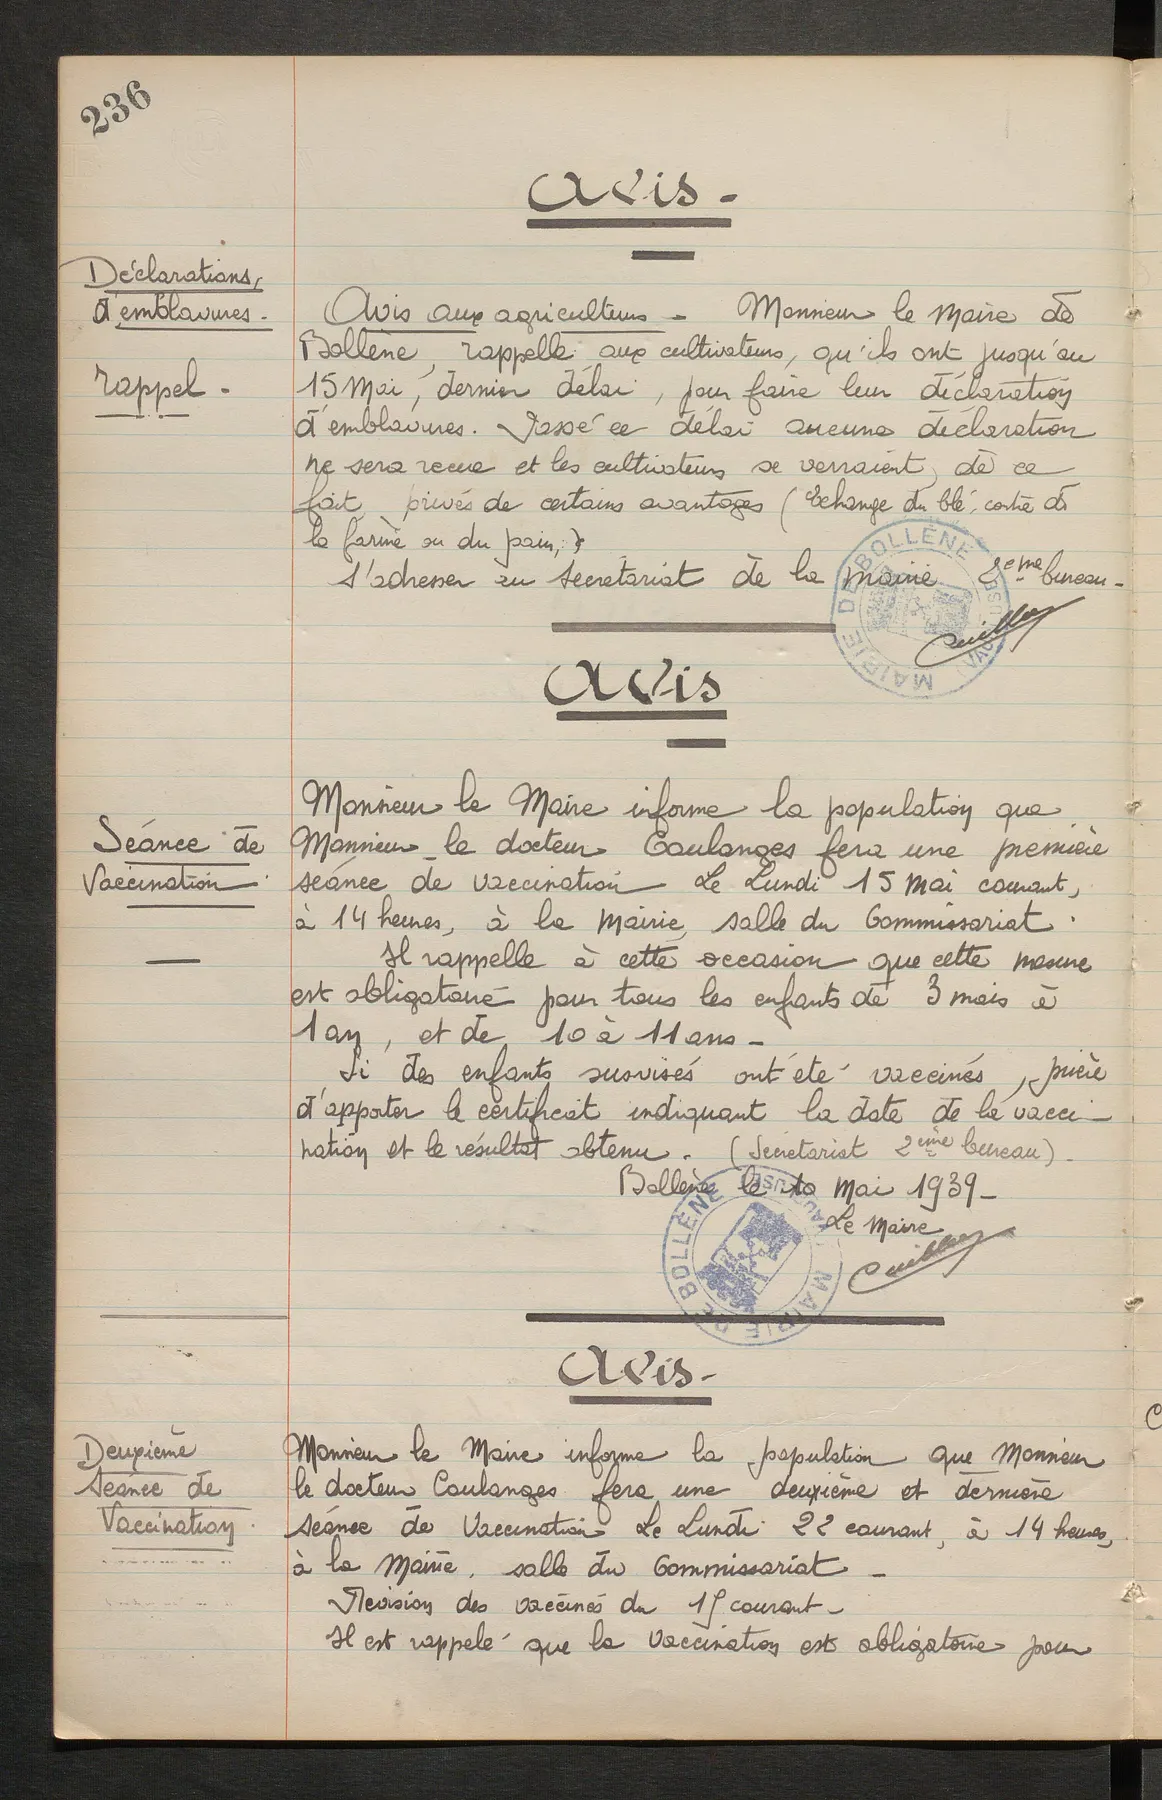 236
Avis -
Déclarations,
d'emblavures -
rappel -
Avis aux agriculteurs - Monsieur le Maire de
Bollène, rappelle aux cultivateurs, qu'ils ont jusqu'au
15 Mai, dernier délai, pour faire leur déclaration
d'emblavures. Passé ce délai aucune déclaration
ne sera reçue et les cultivateurs se verraient, de ce
fait, privés de certains avantages (Echange du blé, contre de
la farine ou du pain,)
S'adresser au Secrétariat de la mairie 2eme bureau -
MAIRIE DE BOLLÈNE VAUCLUSE
Avis
Séance de
Vaccination
Monsieur le Maire informe la population que
Monsieur le docteur Coulanges fera une première
séance de vaccination Le Lundi 15 Mai courant,
à 14 heures, à la Mairie, salle du Commissariat.
Il rappelle à cette occasion que cette mesure
est obligatoire pour tous les enfants de 3 mois à
1 an, et de 10 à 11 ans -
Si des enfants susvisés ont été vaccinés, prière
d'apporter le certificat indiquant la date de la vacci-
nation et le résultat obtenu. (Secrétariat 2eme bureau) -
Bollène le 10 Mai 1939 -
Le Maire
MAIRIE DE BOLLÈNE VAUCLUSE
Avis -
Deuxième
Séance de
Vaccination.
Monsieur le Maire informe la population que Monsieur
le docteur Coulanges fera une deuxième et dernière
séance de Vaccination Le Lundi 22 courant, à 14 heures,
à la Mairie, salle du Commissariat -
Révision des vaccinés du 15 courant -
Il est rappelé que la Vaccination est obligatoire pour